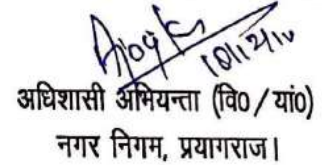 अधिशासी अभियन्ता (वि0/यां0)
नगर निगम, प्रयागराज।